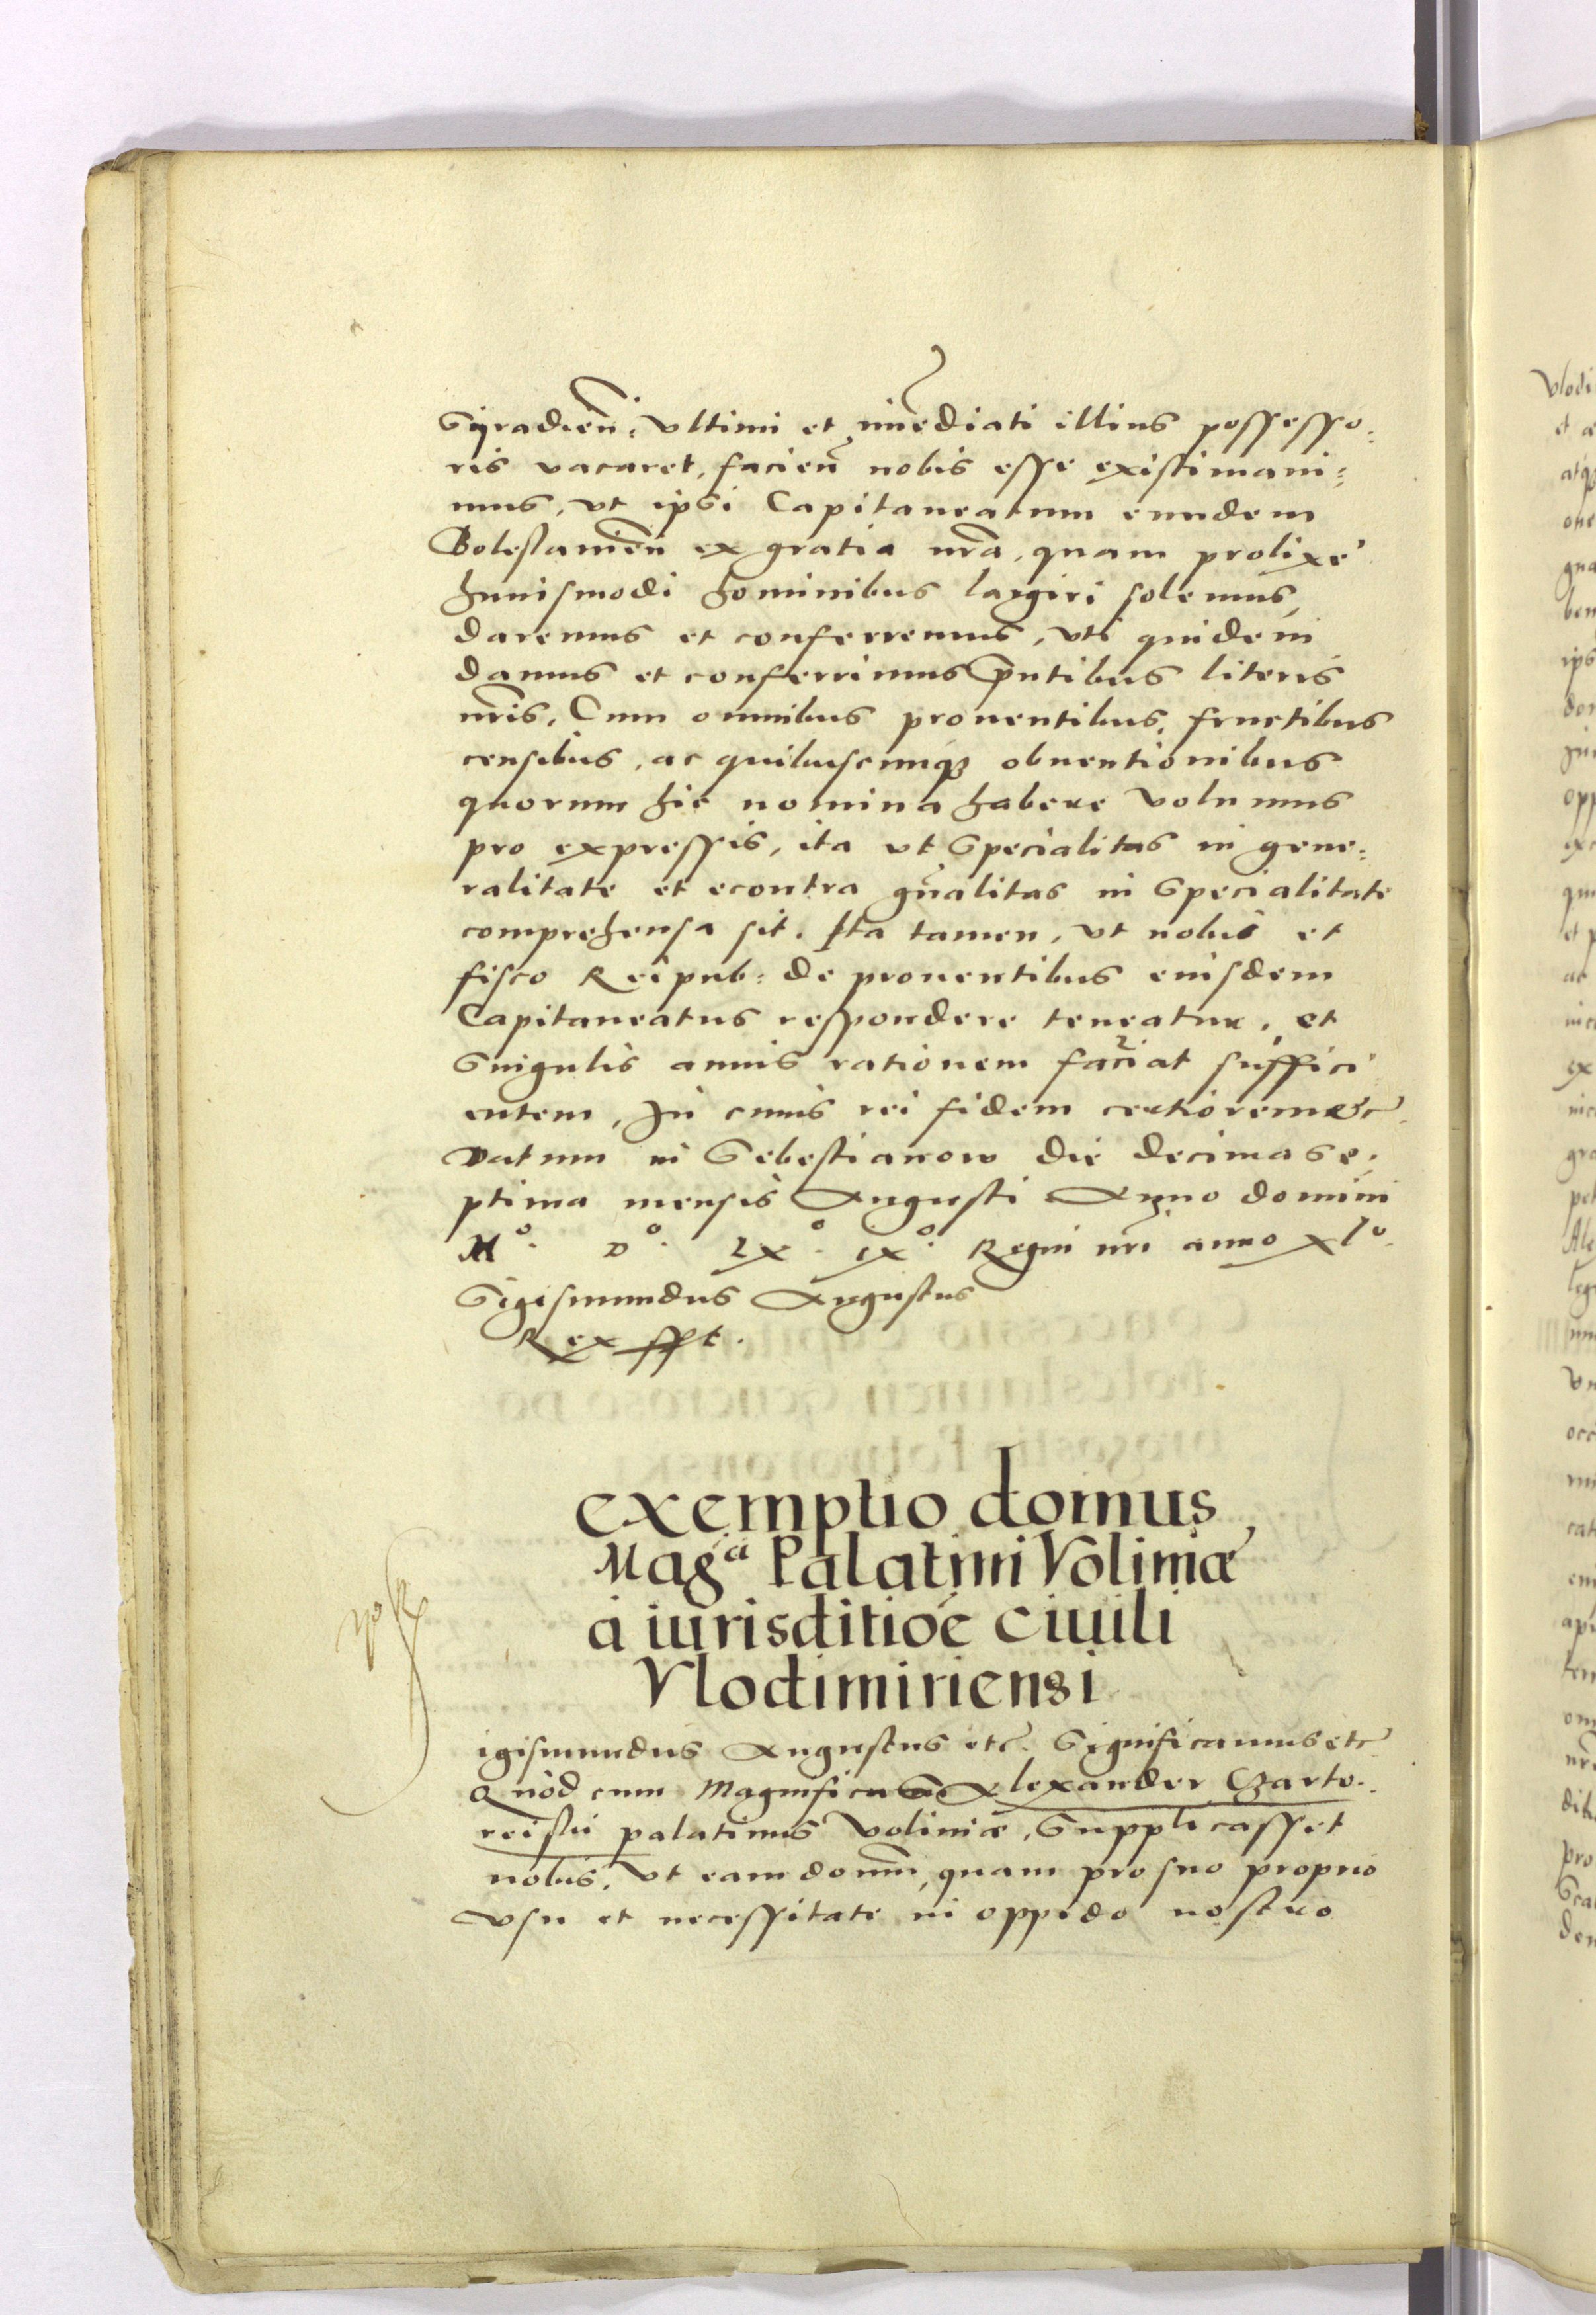 Syradien̄, vltimi et im̄ediati illius possesso:
ris vacaret, facien̄ nobis esse existimaui:
mus, vt ipsi Capitaneatum eundem
Bolestauien̄ ex gratia nrā, quam prolixe
huiusmodi hominibus largiri solemus,
daremus et conferremus, vti quidem
damus et conferrimus pn̄tibus literis
nr̄is. Cum omnibus prouentibus, fructibus
censibus, ac quibuscunq3 obuentionibus
quorum hic nomina habere volumus
pro expressis, ita vt specialitas in gene:
ralitate et econtra gn̄alitas in specialitate
comprehensa sit. Ita tamen, vt nobis et
fisco Reipub: de prouentibus eiusdem
Capitaneatus respondere teneatur, et
singulis annis rationem faciat suffici
entem, In cuius rei fidem certiorem etc̄
Datum in Sebestianow die decima se,
ptima mensis Augusti Anno domini
Mº. Dº. LXº. IXº. Regni nr̄i anno XLº.
Sigismundus Augustus
Rex sspt.
exemptio domus
Magᶜⁱ Palatini Voliniæ
a iurisditiōe ciuili
Vlodimiriensi
igismundus Augustus etc̄. Significamus etc̄
Quod cum Magnificus Alexander Czarto.
reiskii palatinus Voliniæ, Supplicasset
nobis, vt eam domū, quam pro suo proprio
vsu et necessitate in oppido nostro